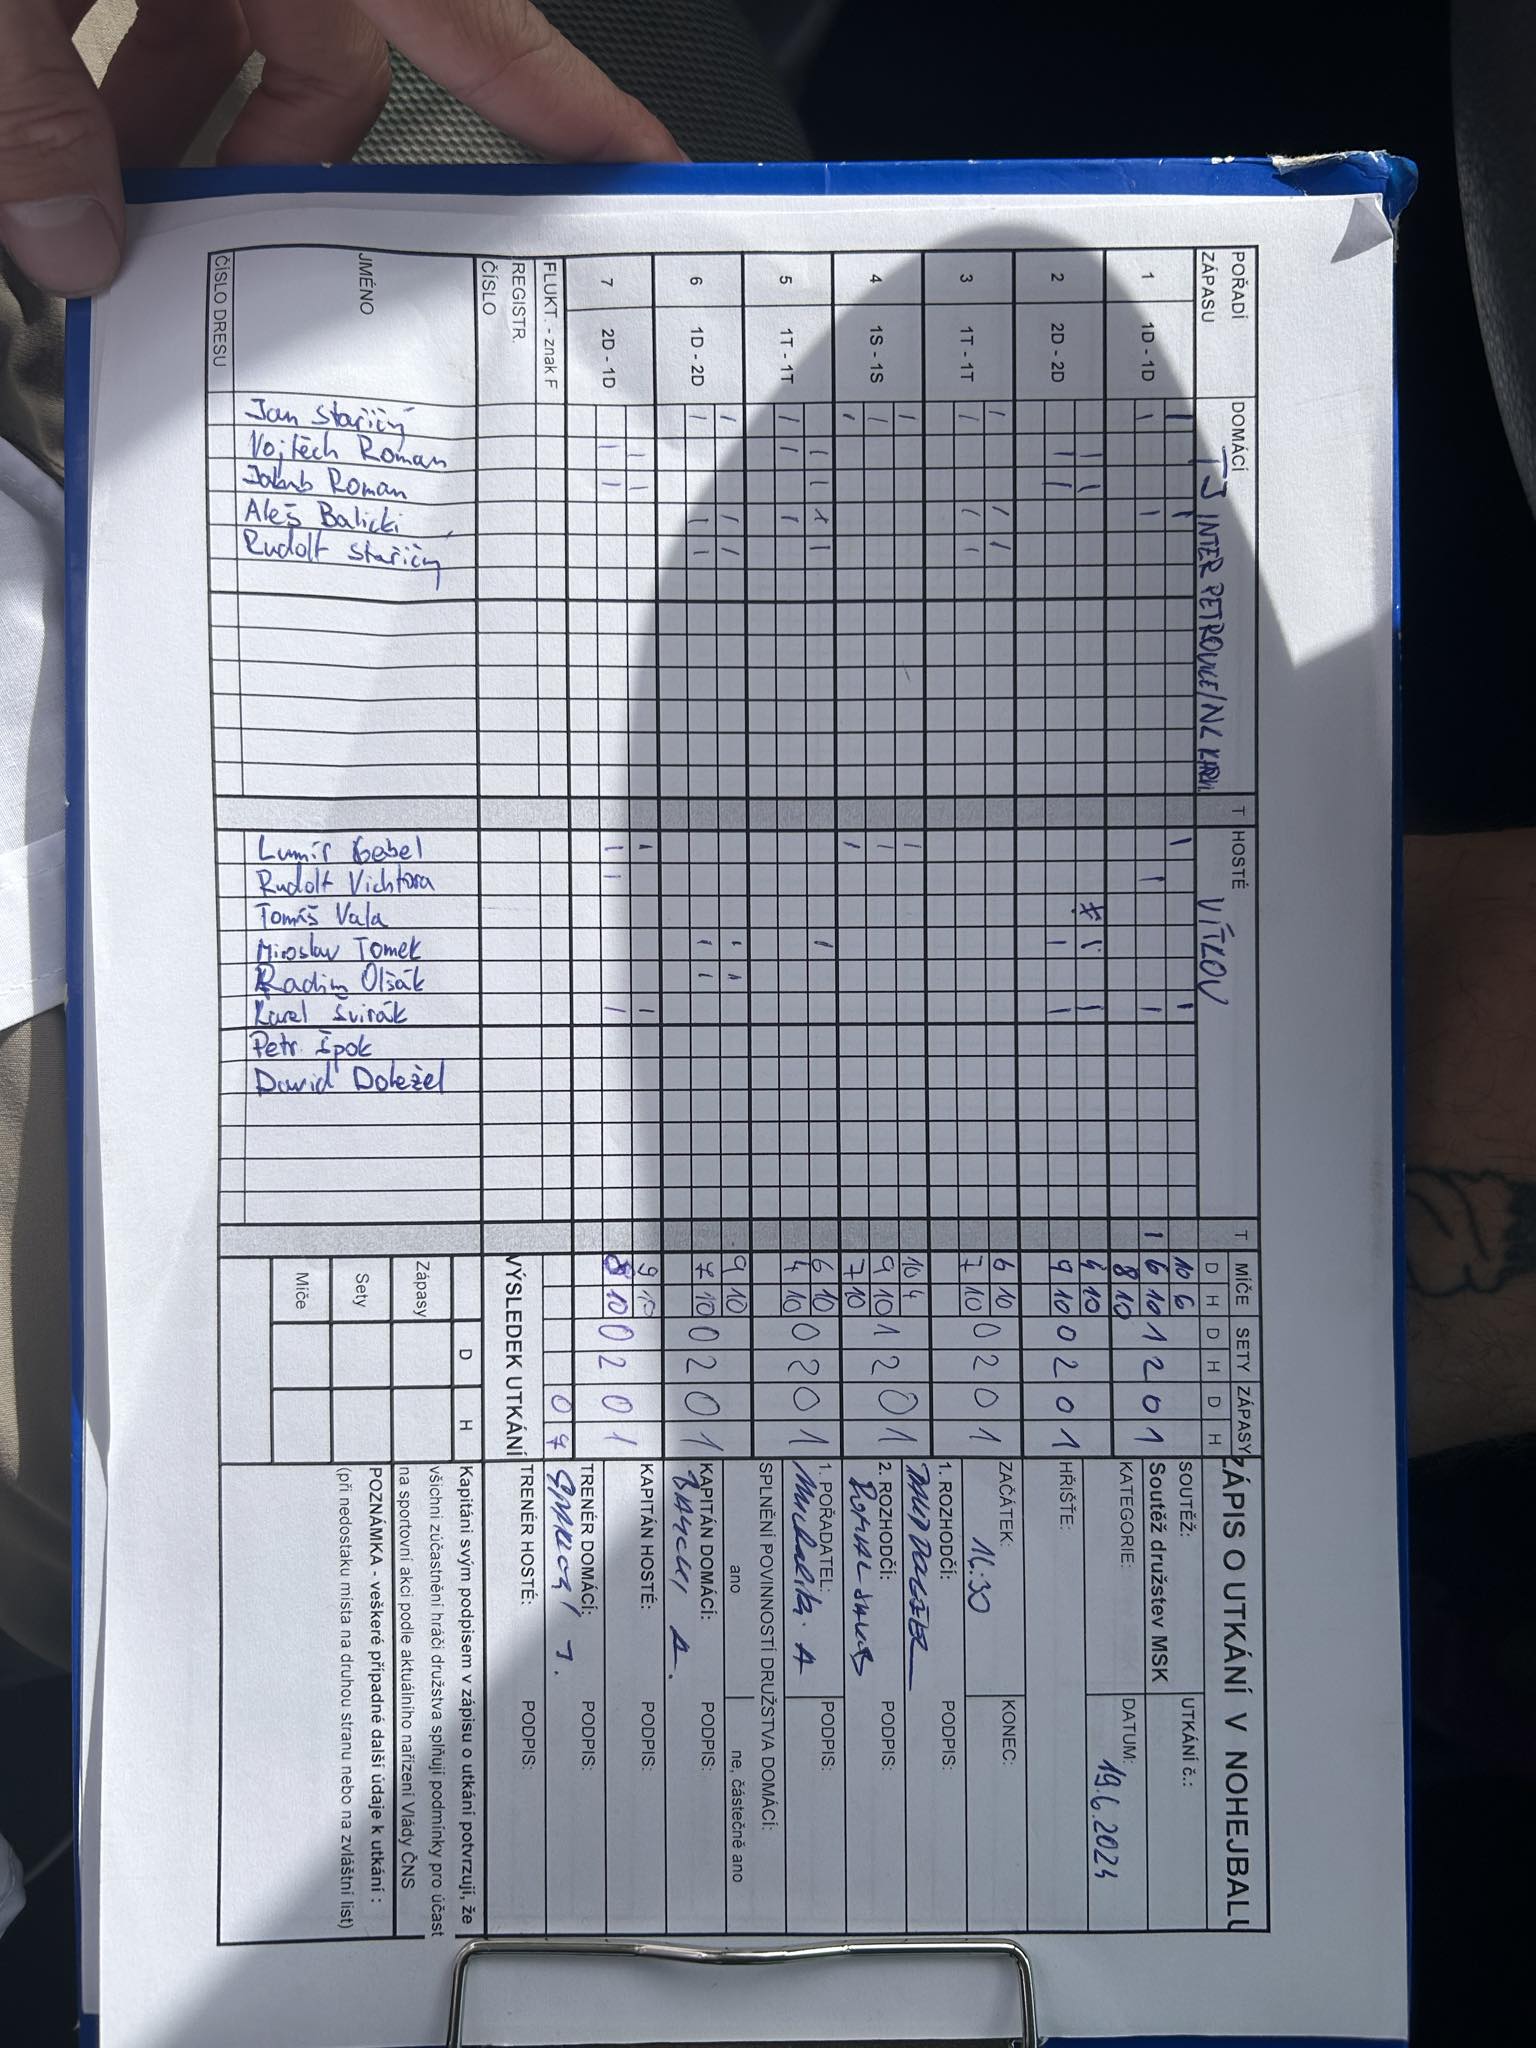 ZÁPIS O UTKÁNÍ V NOHEJBALU
POŘADÍ ZÁPASU
DOMÁCÍ TJ INTER PETROVICE/NC
T
HOSTÉ VÍTKOV
T
MÍČE SETY ZÁPASY
D H D H D H
SOUTĚŽ:
Soutěž družstev MSK
UTKÁNÍ č.:
KATEGORIE:
DATUM: 19.6.2024
HŘIŠTĚ:
ZAČÁTEK: 16:30
KONEC:
1. ROZHODČÍ:
PODPIS:
2. ROZHODČÍ:
PODPIS:
1. POŘADATEL:
PODPIS:
SPLNĚNÍ POVINNOSTÍ DRUŽSTVA DOMÁCÍ:
ano
ne, částečně ano
KAPITÁN DOMÁCÍ:
PODPIS:
KAPITÁN HOSTÉ:
PODPIS:
TRENÉR DOMÁCÍ:
PODPIS:
TRENÉR HOSTÉ:
PODPIS:
1 1D - 1D
10 6
1 6 10 1 2 0 1
8 10
2 2D - 2D
4 10
9 10 0 2 0 1
3 1T - 1T
6 10
7 10 0 2 0 1
4 1S - 1S
10 4
9 10 1 2 0 1
7 10
5 1T - 1T
6 10
4 10 0 2 0 1
6 1D - 2D
9 10
7 10 0 2 0 1
7 2D - 1D
9 10
8 10 0 2 0 1
0 7
FLUKT. - znak F
REGISTR. ČÍSLO
VÝSLEDEK UTKÁNÍ
D H
Zápasy
Sety
Míče
JMÉNO
Jan Stařičný
Vojtěch Roman
Jakub Roman
Aleš Balicki
Rudolf Stařičný
Lumír Gebel
Rudolf Vichtora
Tomáš Vala
Miroslav Tomek
Radim Olšák
Karel Svirák
Petr Špok
David Doležel
ČÍSLO DRESU
Kapitáni svým podpisem v zápisu o utkání potvrzují, že
všichni zúčastnění hráči družstva splňují podmínky pro účast
na sportovní akci podle aktuálního nařízení Vlády ČNS
POZNÁMKA - veškeré případné další údaje k utkání :
(při nedostaku místa na druhou stranu nebo na zvláštní list)